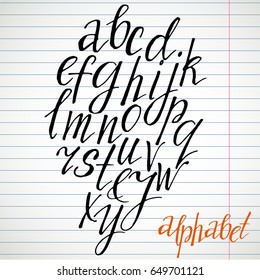 abcd.
efghijk
lmnopq
rstuv
&
w
xy
alphabet
www.shutterstock.com · 649701121